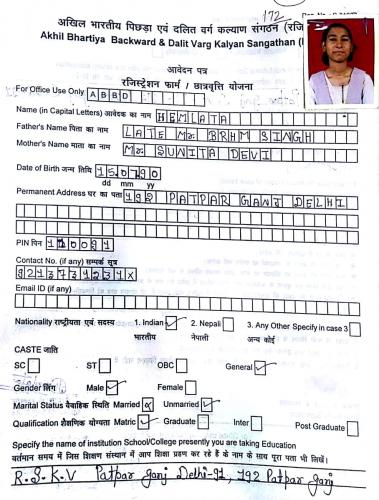 172
अखिल भारतीय पिछड़ा एवं दलित वर्ग कल्याण संगठन (रजि
Akhil Bhartiya Backward & Dalit Varg Kalyan Sangathan (
आवेदन पत्र
रजिस्ट्रेशन फार्म / छात्रवृत्ति योजना
For Office Use Only A B B D
Name (in Capital Letters) आवेदक का नाम HEMLATA
Father's Name पिता का नाम LATE Mr. BRHM SINGH
Mother's Name माता का नाम Mr. SUNITA DEVI
Date of Birth जन्म तिथि 150790
dd mm yy
Permanent Address घर का पता 192 PATPAR GANJ DELHI
PIN पिन 110091
Contact No. (if any) सम्पर्क सूत्र
9213731234X
Email ID (if any)
Nationality राष्ट्रीयता एवं सदस्य 1. Indian ✓ 2. Nepali 3. Any Other Specify in case 3
भारतीय नेपाली अन्य कोई
CASTE जाति
SC ST OBC General ✓
Gender लिंग Male ✓ Female
Marital Status वैवाहिक स्थिति Married Unmarried ✓
Qualification शैक्षणिक योग्यता Matric ✓ Graduate Inter Post Graduate
Specify the name of institution School/College presently you are taking Education
वर्तमान समय में जिस शिक्षण संस्थान में आप शिक्षा ग्रहण कर रहे हैं के नाम के साथ पूरा पता भी लिखें।
R.S.K.V Patpar ganj Delhi-91, 192 Patpar ganj